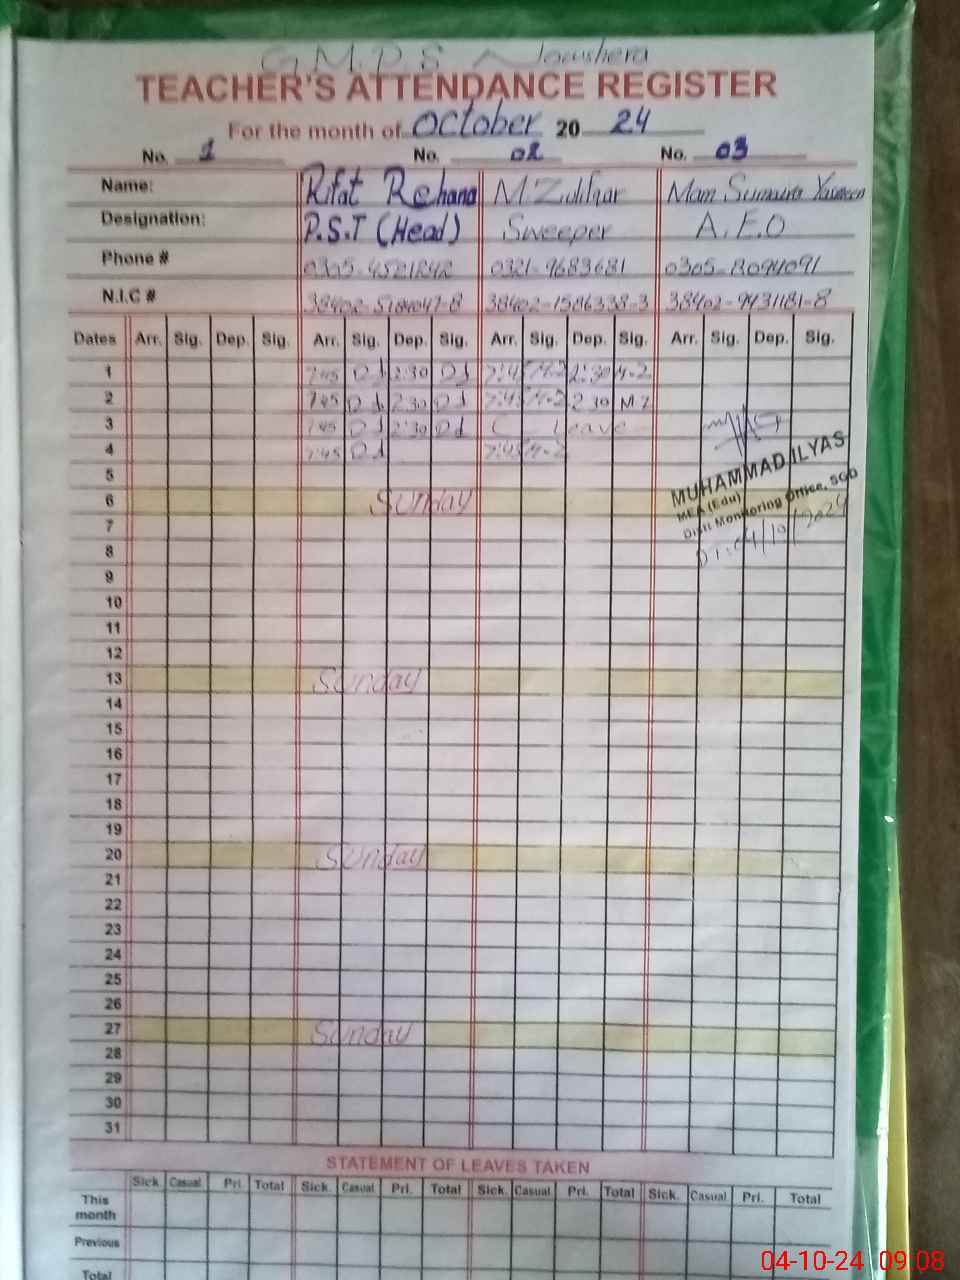 G.M.P.S Nowshera
TEACHER'S ATTENDANCE REGISTER
For the month of October 20 24
No. 1 No. 02 No. 03
Name: Rifat Rehana M. Zulifqar Mam Sumaira Yasmeen
Designation: P.S.T (Head) Sweeper A.E.O
Phone # 0305-4521242 0321-9683681 0305-
N.I.C # 38402-1586338-3 38402-9431181-8
Dates Arr. Sig. Dep. Sig. Arr. Sig. Dep. Sig. Arr. Sig. Dep. Sig. Arr. Sig. Dep. Sig.
1 7:45 2:30 7:45 M-Z 2:30 M-Z
2 7:45 2:30 7:45 M-Z 2:30 M.Z
3 7:45 2:30 C Leave
4 7:45 7:45 M-Z
MUHAMMAD ILYAS
5
MEA (Edu)
6 Sunday
Distt Monitoring Office, SGD
7
DT: 04/10/2024
8
9
10
11
12
13 Sunday
14
15
16
17
18
19
20 Sunday
21
22
23
24
25
26
27 Sunday
28
29
30
31
STATEMENT OF LEAVES TAKEN
Sick. Casual Pri. Total Sick. Casual Pri. Total Sick. Casual Pri. Total Sick. Casual Pri. Total
This
month
Previous
Total
04-10-24 09:08